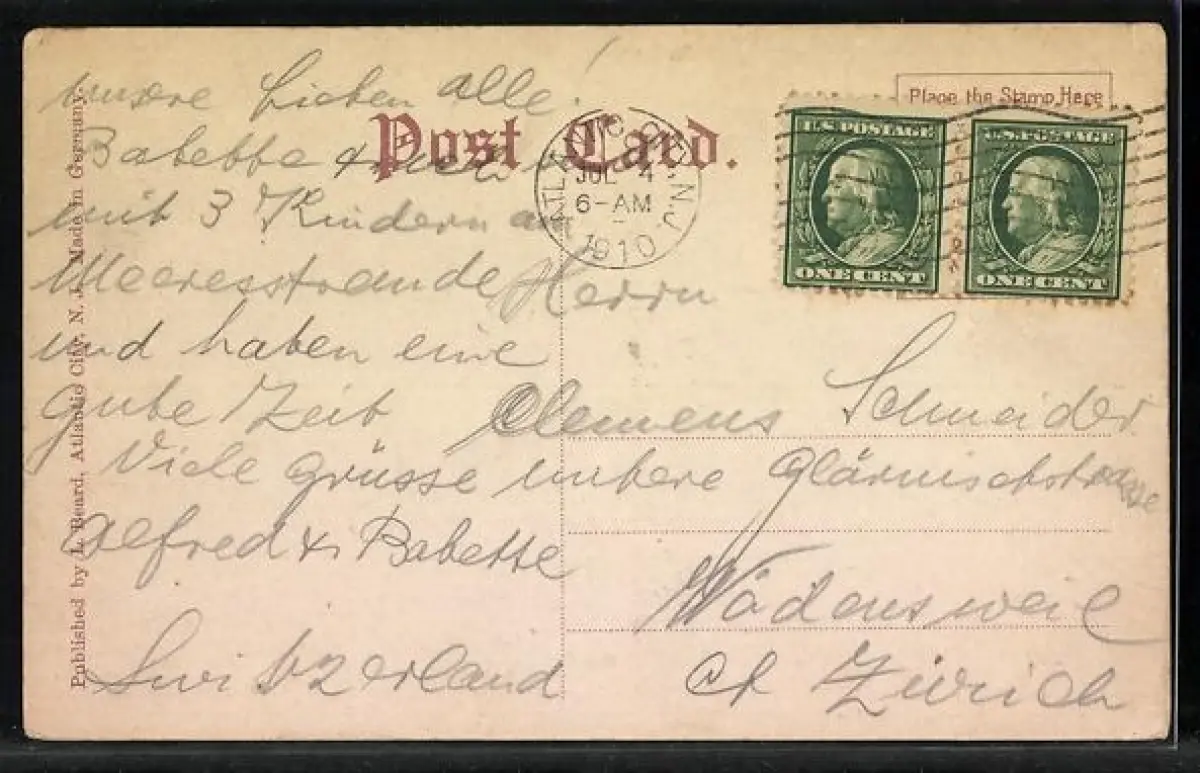 Place the Stamp Here
Post Card.
U.S. POSTAGE
ONE CENT
U.S. POSTAGE
ONE CENT
ATLANTIC CITY, N.J.
JUL 4
6-AM
1910
unsere Lieben alle!
Babette &
mit 3 Kindern am
Meeresstrande
und haben eine
gute Zeit
Viele Grüsse
Alfred & Babette
Herrn
Clemens Schneider
untere Glärnischstrasse
Wädensweil
ct Zürich
Switzerland
Published by L. Beard, Atlantic City, N. J. Made in Germany.